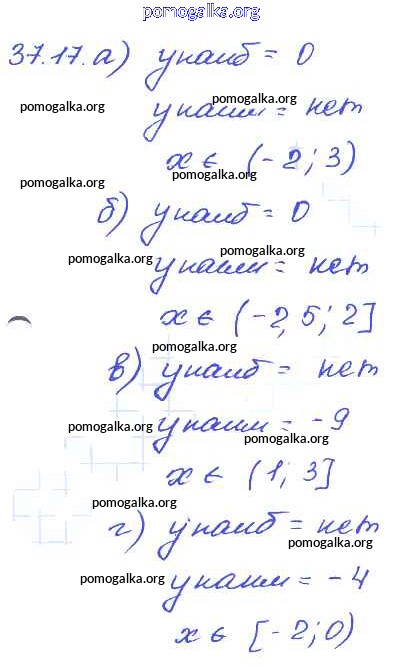 pomogalka.org
37.17. а) yнаиб = 0
pomogalka.org pomogalka.org
yнаим = нет
x ∈ (-2; 3)
pomogalka.org pomogalka.org
б) yнаиб = 0
pomogalka.org pomogalka.org
yнаим = нет
x ∈ (-2,5; 2]
pomogalka.org
в) yнаиб = нет
yнаим = -9
pomogalka.org pomogalka.org
x ∈ (1; 3]
pomogalka.org
г) yнаиб = нет
pomogalka.org
pomogalka.org yнаим = -4
x ∈ [-2; 0)